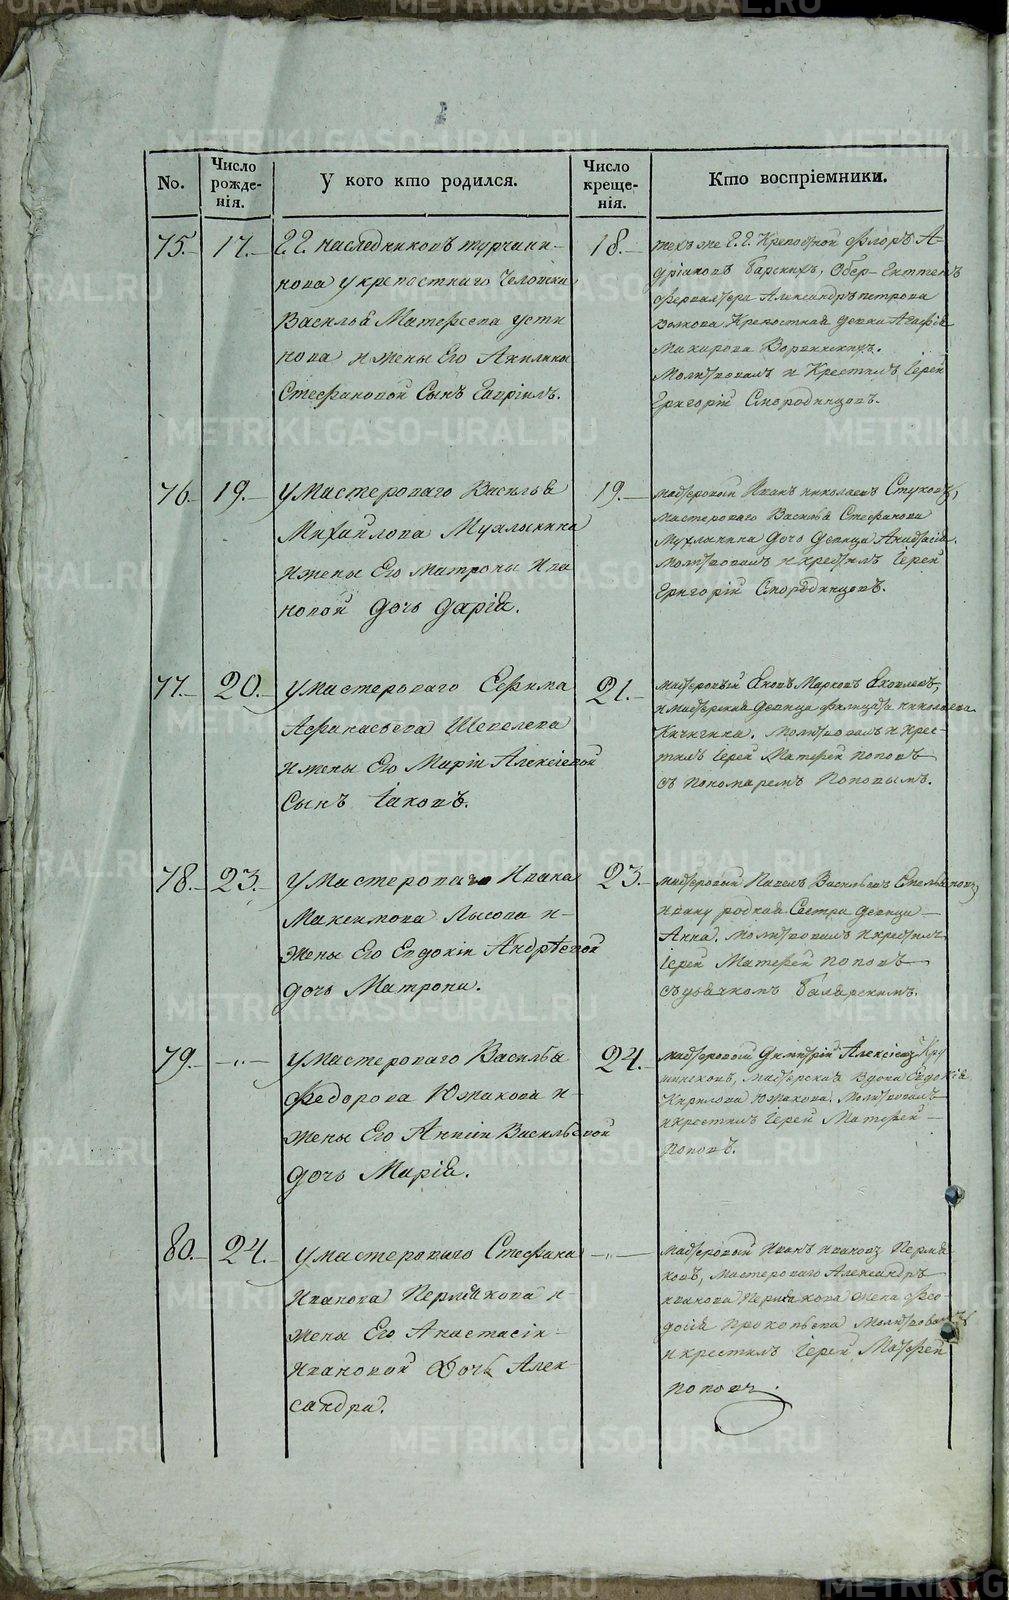 No.
Число рожде-нія.
У кого кто родился.
Число креще-нія.
Кто воспріемники.
75. 17.
Г.Г. наследниковъ турчани-
нова у крепостнаго Человека
Василья Матфеева усти
нова и жены Его Акилины
Стефановой Сынъ Гавріилъ.
18.
техъ же Г.Г. Крепостной Флоръ А-
дріановъ Барскихъ, Обер-
фервалтера Александръ петрова
волкова Крепостная девка Агафія
Макарова
Молитвовалъ и Крестилъ Іерей
Григорій Смородинцовъ.
76. 19.
у Мастероваго Василья
Михайлова Мухлынина
и жены Его Матроны Ива
новой дочь дарія.
19.
мастеровый Иванъ николаевъ Стуковъ,
мастероваго Василья Стефанова
Мухлынина дочь девица Анастасія.
молитвовалъ и крестилъ Іерей
Григорій Смородинцовъ.
77. 20.
у мастероваго Ефима
Афанасьева Шепелева
и жены Его Маріи Алексіевой
Сынъ Іаковъ.
21.
мастеровый Яковъ Марковъ Яковлевъ,
и мастерская девица николаева
Кичигина. молитвовалъ и крес-
тилъ Іерей Матфей поповъ
съ пономаремъ Поповымъ.
78. 23.
у Мастероваго Ивана
Максимова Лысова и
жены Его Евдокіи Андрѣевой
дочь Матрона.
23.
мастеровый Павелъ Васильевъ
и ему родная Сестра девица
Анна. молитвовалъ и крестилъ
Іерей Матфей поповъ
съ дьячкомъ
79. -„-
у Мастероваго Василья
Федорова Южакова и
жены Его Анисіи Васильевой
дочь Марія.
24.
мастеровый Димитрій Алексіевъ
мастерская вдова Евдокія
Кирилова Южакова. молитвовалъ
и крестилъ Іерей Матфей
поповъ.
80. 24.
у мастероваго Стефана
Иванова Пермякова и
жены Его Анастасіи
Ивановой Дочь Алек-
сандра.
-„-
мастеровый Иванъ Ивановъ Пермя
ковъ, мастероваго Александръ
иванова Пермякова жена фео-
досія Прокопьева молитвовалъ
и крестилъ Іерей Матфей
поповъ.
METRIKI.GASO-URAL.RU